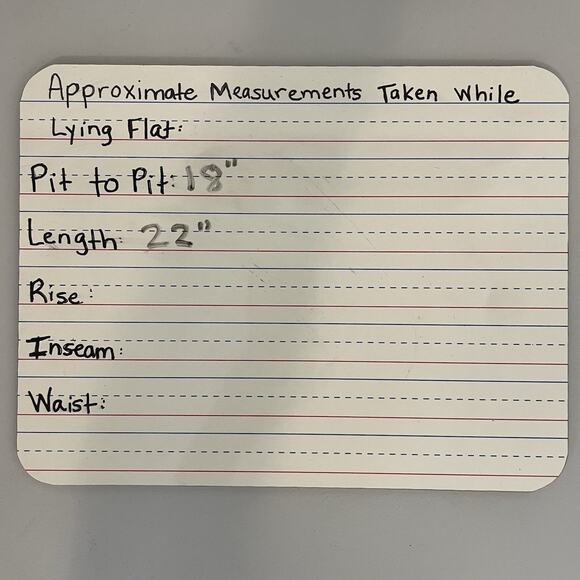 Approximate Measurements Taken While
Lying Flat:
Pit to Pit: 18"
Length: 22"
Rise:
Inseam:
Waist: